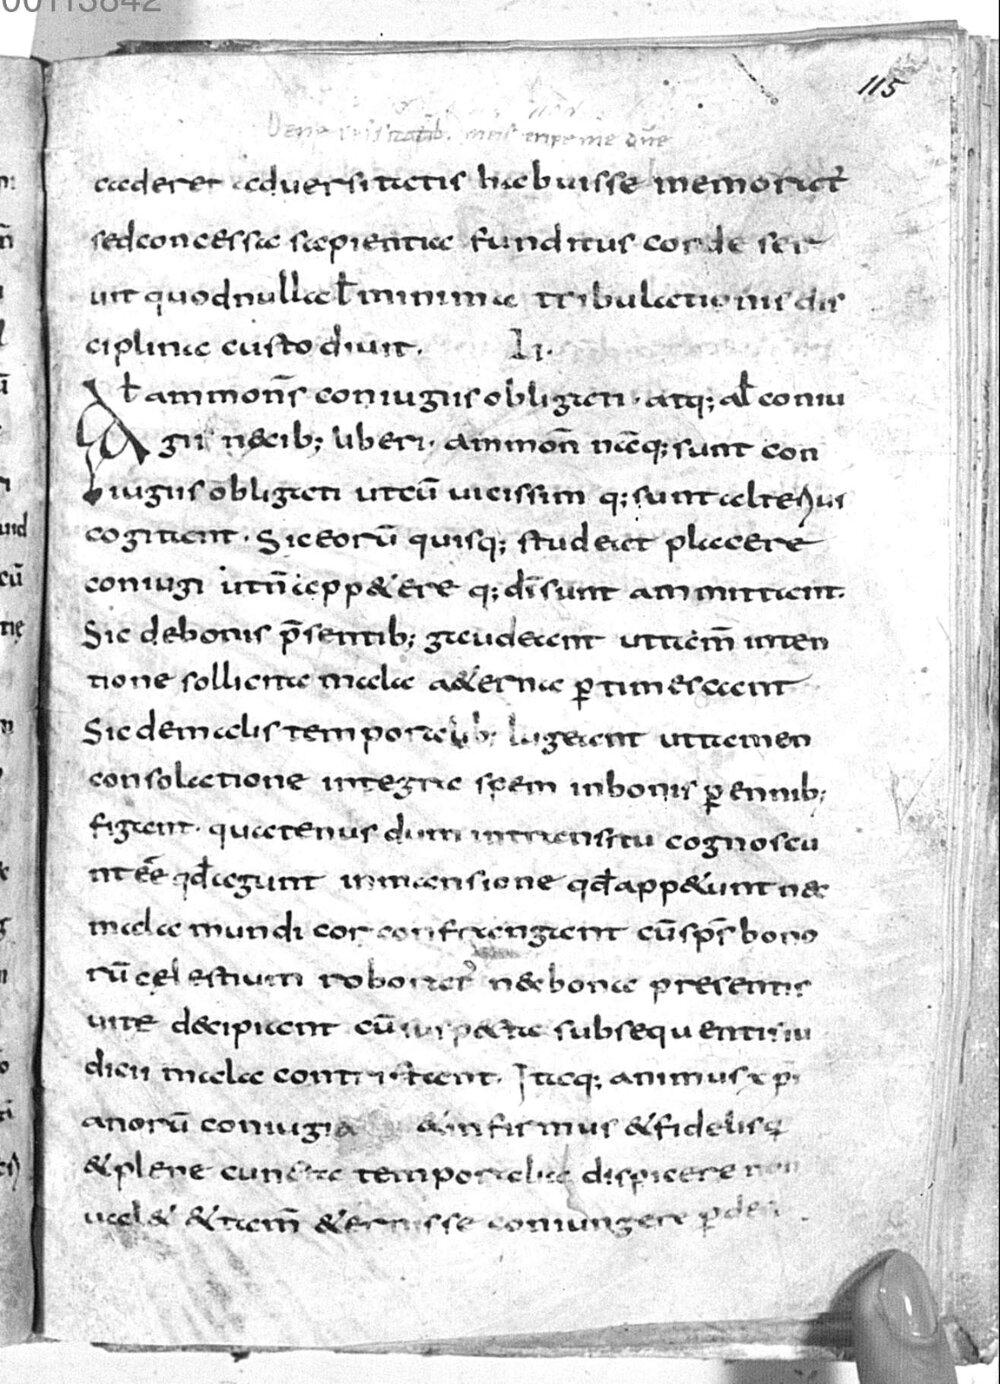 00113842
115
meis eripe me dñe
caderet adversitatis habuisse memoriat᷒
sed concessa sapientia funditus corde ser
vit quod nulla ł minima tribulationis dis
ciplina custodivit. LI.
Ał ammonēs coniugiis obligati · atq; ał coniu
giı nexib; liberi · ammonen̄ nāq; sunt con
iugiis obligati ut cū vicissim q; sunt alterius
cogitant · Sic eorū quisq; studeat placere
coniugi ut n̄ appetere q; dı̄ sunt ammittant.
Sic de bonis p̄sentib; gaudeant ut tam̄ inten
tione sollicita mala aeterna ꝑtimescant
Sic de malis temporalib; lugeant ut tamen
consolatione integra spem in bonis ꝑennib;
figant · quatenus dum in transitu cognoscu
nt eē qđ agunt in mansione qđ appetunt nec
mala mundi cor confrangant cū spēs bono
rū celestium roborat᷒ nec bona presentis
vite decipiant cū suspecta subsequentis iu
dicii mala contristant. Itaq; animus xp̄i
anorū coniugia & infirmus & fidelis q
& plene cuncta temporalia dispicere non
valet & tam̄ aeternis se coniungere ꝑ desi